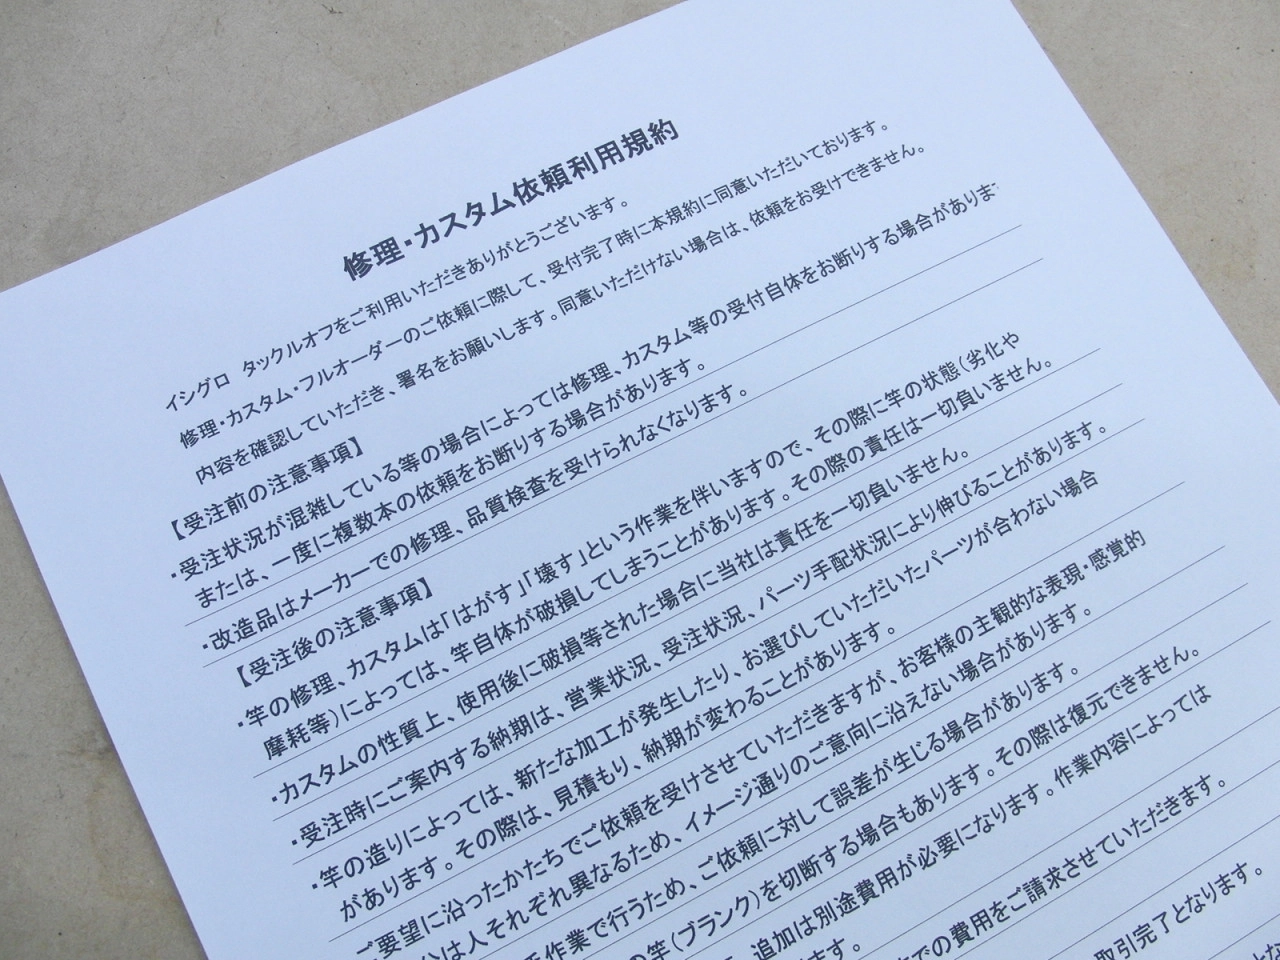 修理・カスタム依頼利用規約
イシグロ　タックルオフをご利用いただきありがとうございます。
修理・カスタム・フルオーダーのご依頼に際して、受付完了時に本規約に同意いただいております。
内容を確認していただき、署名をお願いします。同意いただけない場合は、依頼をお受けできません。
【受注前の注意事項】
・受注状況が混雑している等の場合によっては修理、カスタム等の受付自体をお断りする場合がありま
または、一度に複数本の依頼をお断りする場合があります。
・改造品はメーカーでの修理、品質検査を受けられなくなります。
【受注後の注意事項】
・竿の修理、カスタムは「はがす」「壊す」という作業を伴いますので、その際に竿の状態(劣化や
摩耗等)によっては、竿自体が破損してしまうことがあります。その際の責任は一切負いません。
・カスタムの性質上、使用後に破損等された場合に当社は責任を一切負いません。
・受注時にご案内する納期は、営業状況、受注状況、パーツ手配状況により伸びることがあります。
・竿の造りによっては、新たな加工が発生したり、お選びしていただいたパーツが合わない場合
があります。その際は、見積もり、納期が変わることがあります。
ご要望に沿ったかたちでご依頼を受けさせていただきますが、お客様の主観的な表現・感覚的
は人それぞれ異なるため、イメージ通りのご意向に沿えない場合があります。
作業で行うため、ご依頼に対して誤差が生じる場合があります。
の竿(ブランク)を切断する場合もあります。その際は復元できません。
追加は別途費用が必要になります。作業内容によっては
ます。
での費用をご請求させていただきます。
取引完了となります。